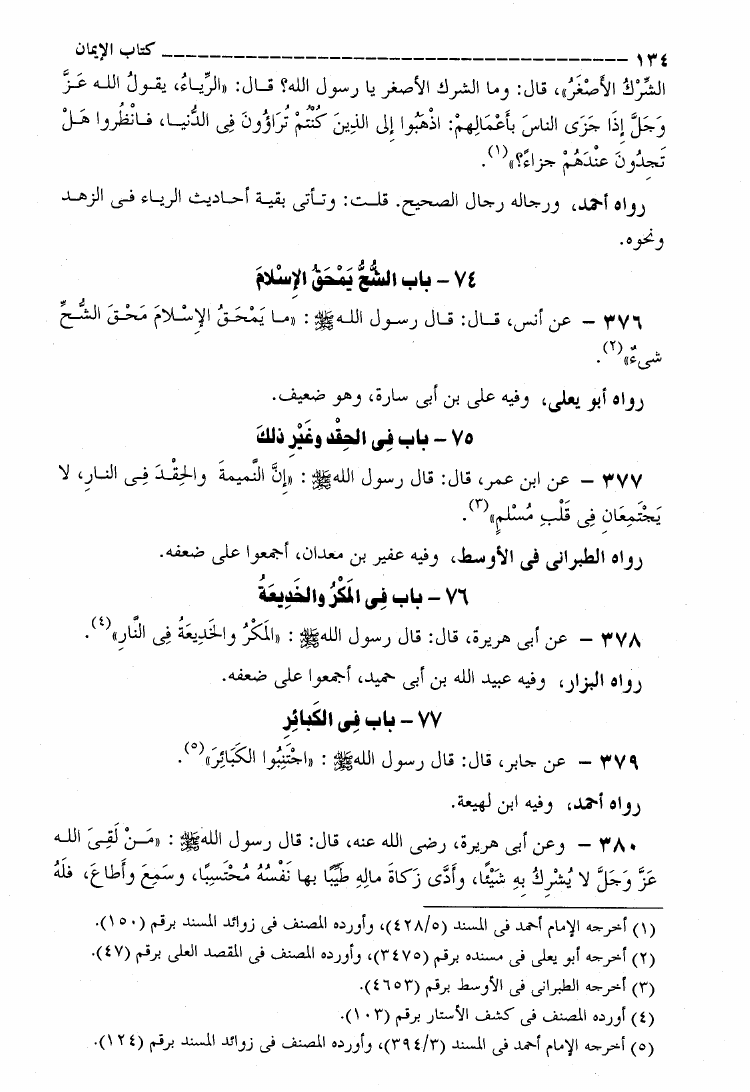 ١٣٤ ــــــــــــــــــــــــــــــــــــــــــــــــــــــــــــــــــــ كتاب الإيمان
الشِّرْكُ الأَصْغَرُ»، قال: وما الشرك الأصغر يا رسول الله؟ قـال: «الرِّياءُ، يقولُ الله عَزَّ
وَجَلَّ إِذَا جَزَى الناسَ بأَعْمَالِهِمْ: اذْهَبُوا إلى الذينَ كُنْتُمْ تُرَاؤُونَ فِى الدُّنيـا، فـانْظُروا هَلْ
تَجِدُونَ عنْدَهُمْ جزاءً؟»(١).
رواه أحمد، ورجاله رجال الصحيح. قلـت: وتـأتى بقية أحـاديث الريـاء فـى الزهـد
ونحوه.
٧٤ – باب الشُّحُّ يَمْحَقُ الإِسْلامَ
٣٧٦ – عن أنس، قـال: قـال رسـول اللـه ﷺ: «مـا يَمْحَـقُ الإِسْـلامَ مَحْقَ الشُّـحِّ
شىءٌ»(٢).
رواه أبو يعلى، وفيه على بن أبى سارة، وهو ضعيف.
٧٥ – باب فِى الحِقْدِ وغَيْرِ ذلكَ
٣٧٧ – عن ابن عمر، قال: قال رسول الله ﷺ: «إنَّ النَّميمةَ والحِقْـدَ فِـى النـارِ، لا
يَجْتَمِعَانِ فِى قَلْبِ مُسْلمٍ»(٣).
رواه الطبرانى فى الأوسط، وفيه عفير بن معدان، أجمعوا على ضعفه.
٧٦ – باب فِى المَكْرُ والخَدِيعَةُ
٣٧٨ – عن أبى هريرة، قال: قال رسول الله ﷺ: «المَكْرُ والخَدِيعَةُ فِى النَّارِ»(٤).
رواه البزار، وفيه عبيد الله بن أبى حميد، أجمعوا على ضعفه.
٧٧ – باب فِى الكَبائِرِ
٣٧٩ – عن جابر، قال: قال رسول الله ﷺ: «اجْتَنِبُوا الكَبَائِرَ»(٥).
رواه أحمد، وفيه ابن لهيعة.
٣٨٠ – وعن أبى هريرة، رضى الله عنه، قال: قال رسول الله ﷺ: «مَـنْ لَقِـىَ اللـه
عَزَّ وَجَلَّ لا يُشْرِكُ بِهِ شَيْئًا، وأَدَّى زَكاةَ مالِهِ طَيِّبًا بها نَفْسُهُ مُحْتَسِبًا، وسَمِعَ وأَطاعَ، فلَهُ
(١) أخرجه الإمام أحمد فى المسند (٤٢٨/٥)، وأورده المصنف فى زوائد المسند برقم (١٥٠).
(٢) أخرجه أبو يعلى فى مسنده برقم (٣٤٧٥)، وأورده المصنف فى المقصد العلى برقم (٤٧).
(٣) أخرجه الطبرانى فى الأوسط برقم (٤٦٥٣).
(٤) أورده المصنف فى كشف الأستار برقم (١٠٣).
(٥) أخرجه الإمام أحمد فى المسند (٣٩٤/٣)، وأورده المصنف فى زوائد المسند برقم (١٢٤).